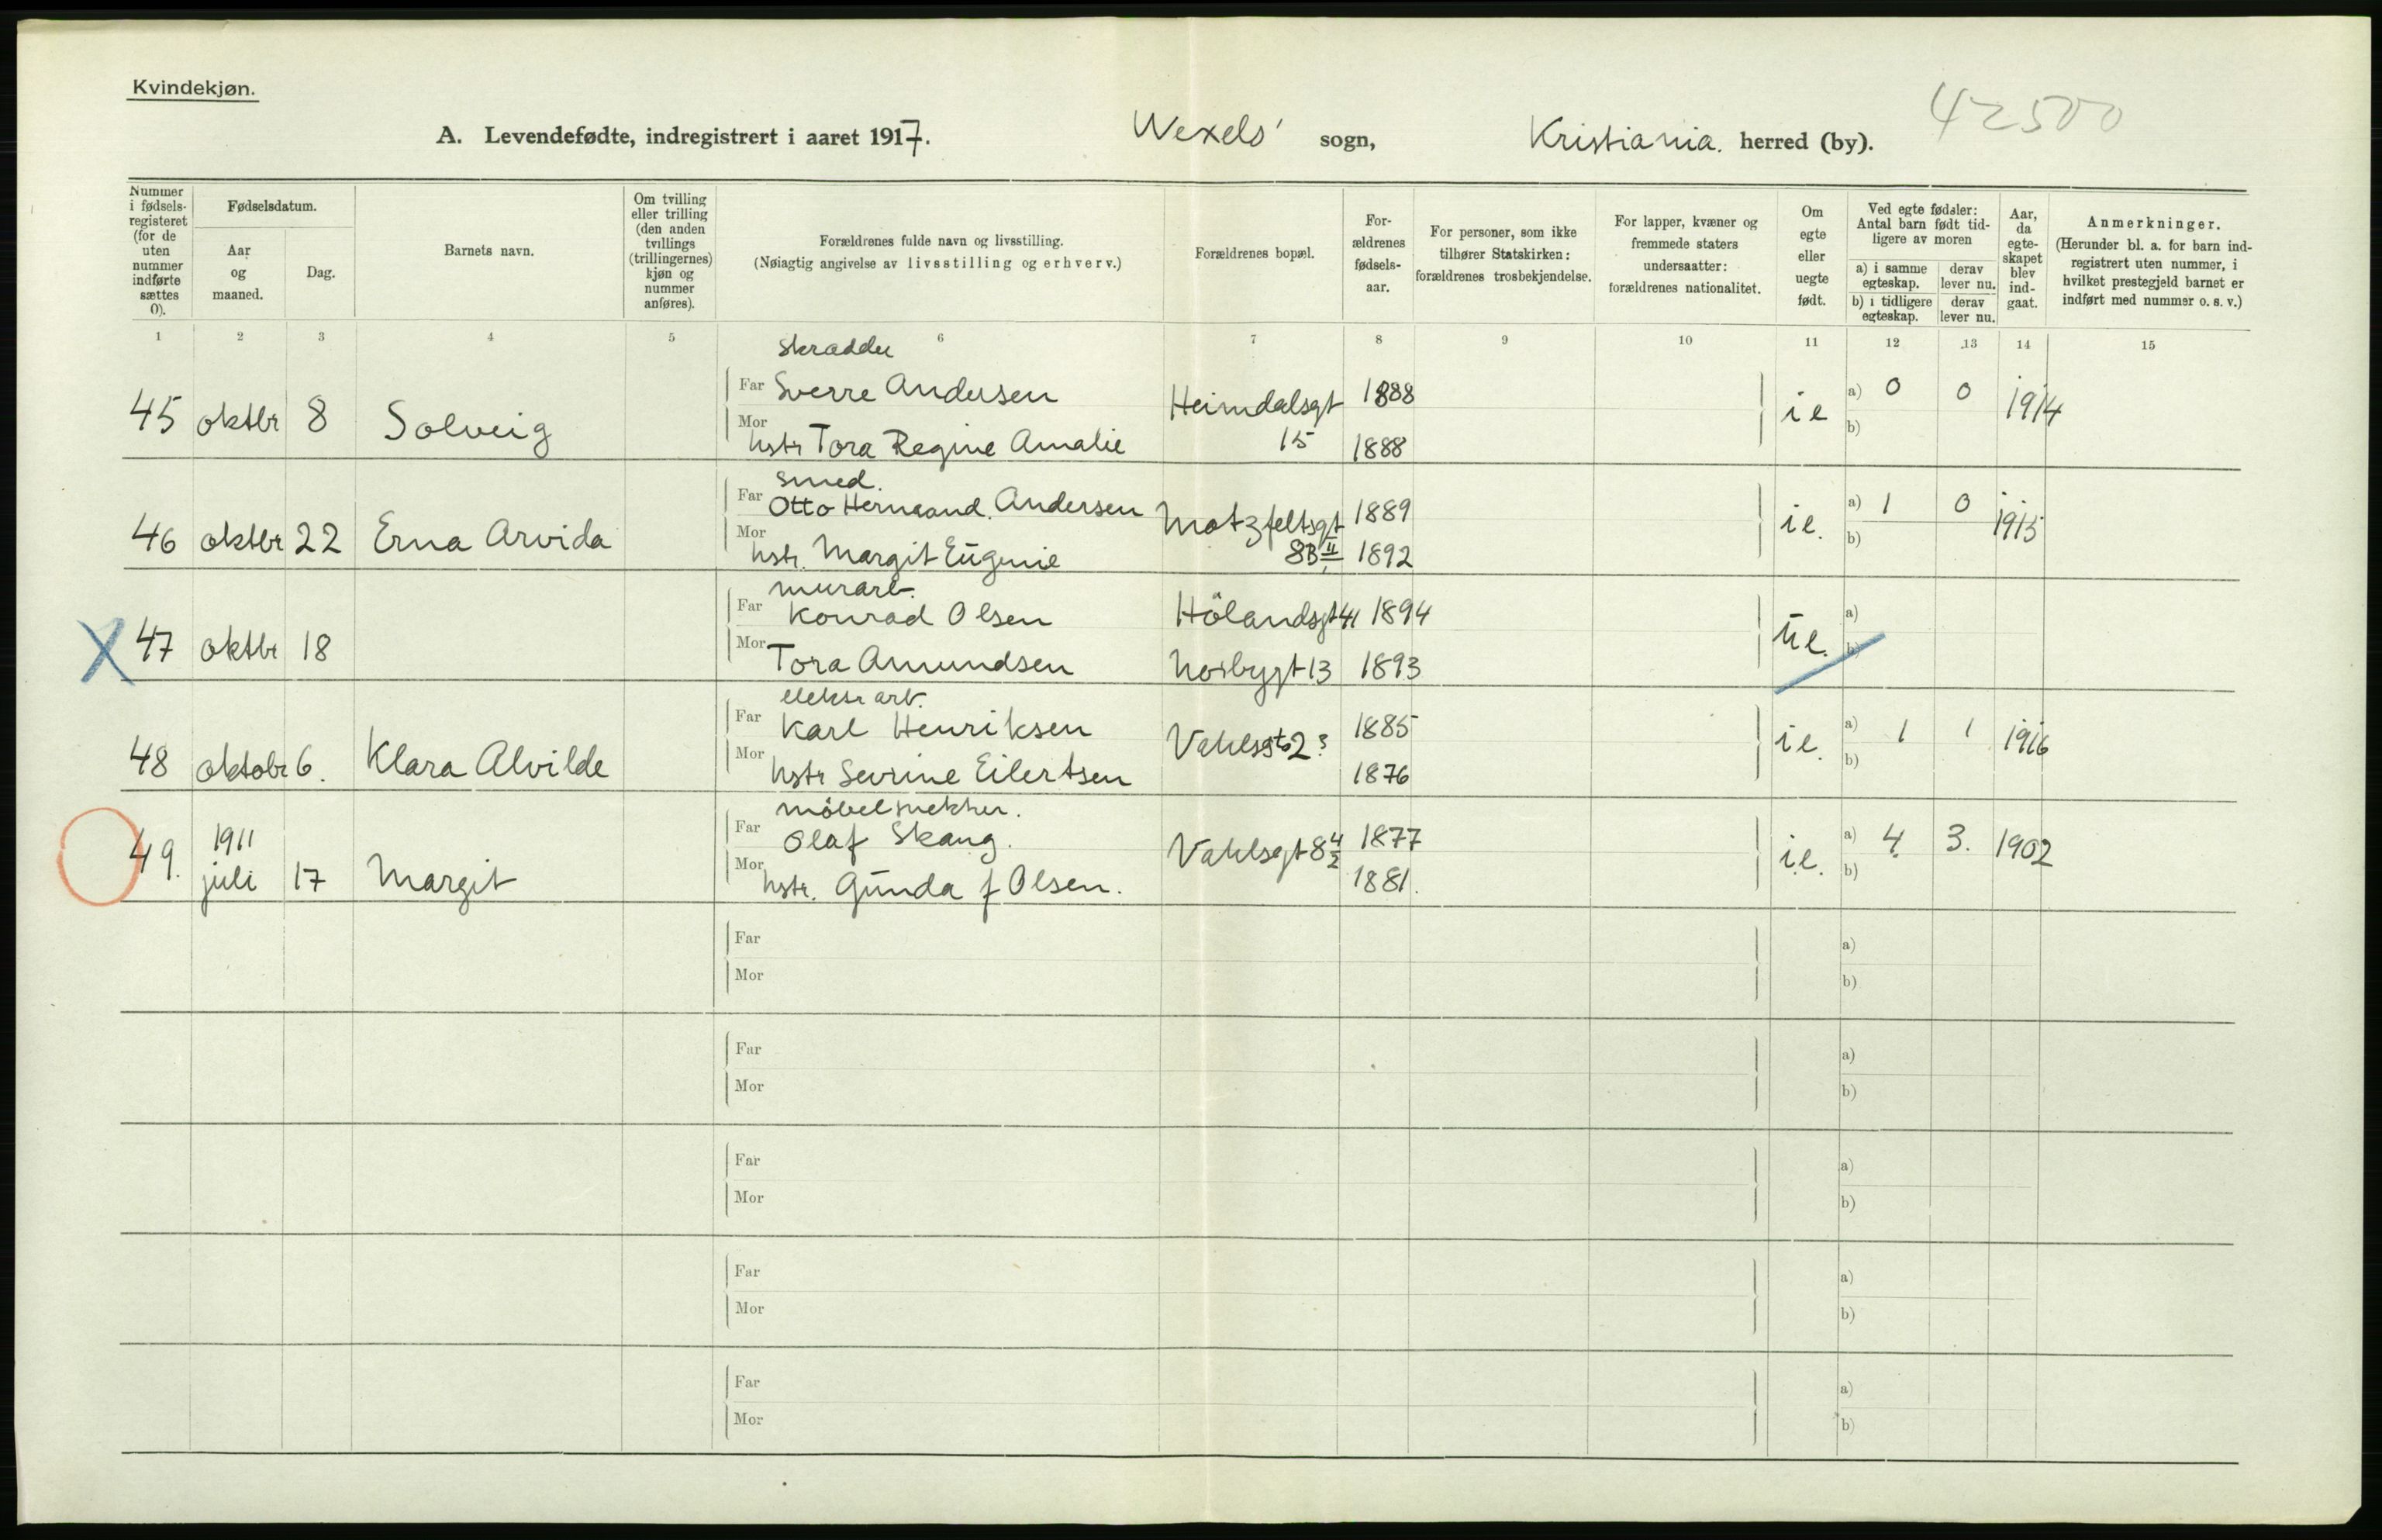 Kvindekjøn.
42500
A. Levendefødte, indregistrert i aaret 1917. Wexels' sogn, Kristiania. herred (by).
Nummer i fødsels-registeret (for de uten nummer indførte sættes 0).
Fødselsdatum.
Aar og maaned.
Dag.
Barnets navn.
Om tvilling eller trilling (den anden tvillings (trillingernes) kjøn og nummer anføres).
Forældrenes fulde navn og livsstilling.
(Nøiagtig angivelse av livsstilling og erhverv.)
Forældrenes bopæl.
For-ældrenes fødsels-aar.
For personer, som ikke tilhører Statskirken: forældrenes trosbekjendelse.
For lapper, kvæner og fremmede staters undersaatter: forældrenes nationalitet.
Om egte eller uegte født.
Ved egte fødsler: Antal barn født tid-ligere av moren
a) i samme egteskap.
b) i tidligere egteskap.
derav lever nu.
derav lever nu.
Aar, da egte-skapet blev ind-gaat.
Anmerkninger.
(Herunder bl. a. for barn ind-registrert uten nummer, i hvilket prestegjeld barnet er indført med nummer o. s. v.)
1 2 3 4 5 6 7 8 9 10 11 12 13 14 15
skrædder
Far Sverre Andersen 1888 a) 0 0
45 oktbr 8 Solveig Heimdalsgt 15 ie 1914
Mor hstr Tora Regine Amalie 1888 b)
smed.
Far Otto Hernaand. Andersen 1889 a) 1 0
46 oktbr 22 Erna Arvida Motzfeltsgt 8B II ie. 1915
Mor hstr. Margit Eugenie 1892 b)
murarb.
Far Konrad Olsen Hölandsgt 41 1894 a)
X 47 oktbr 18 ue.
Mor Tora Amundsen Norbygt 13 1893 b)
elektr arb.
Far Karl Henriksen 1885 a) 1 1
48 oktobr 6. Klara Alvilde Vahlsgt 2 3 ie. 1916
Mor hstr Sevrine Eilertsen 1876 b)
möbelsnekker.
Far Olaf Skaug. 1877 a) 4 3.
49. 1911 juli 17 Margit Vahlsgt 8 4/2 ie. 1902
Mor hstr. Gunda f Olsen. 1881. b)
Far a)
Mor b)
Far a)
Mor b)
Far a)
Mor b)
Far a)
Mor b)
Far a)
Mor b)